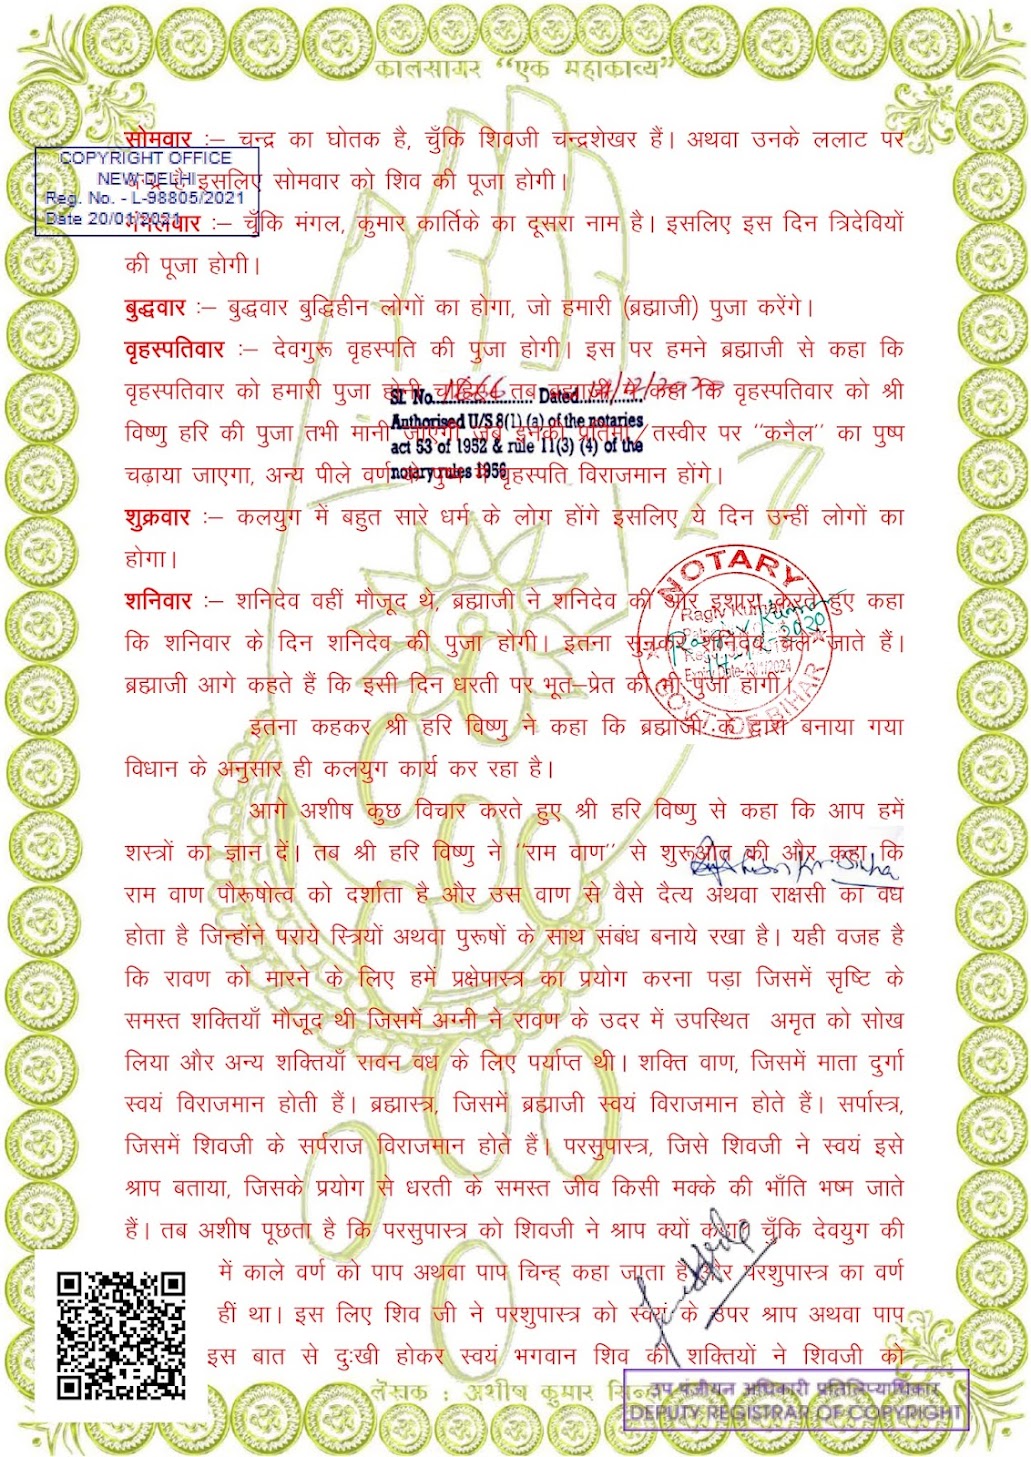 कालसागर “एक महाकाव्य”
सोमवार :– चन्द्र का घोतक है, चुँकि शिवजी चन्द्रशेखर हैं। अथवा उनके ललाट पर
COPYRIGHT OFFICE
NEW DELHI
Reg. No. - L-98805/2021
Date 20/01/2021
इसलिए सोमवार को शिव की पूजा होगी।
:– चुँकि मंगल, कुमार कार्तिके का दूसरा नाम है। इसलिए इस दिन त्रिदेवियों
की पूजा होगी।
बुद्धवार :– बुद्धवार बुद्धिहीन लोगों का होगा, जो हमारी (ब्रह्माजी) पुजा करेंगे।
वृहस्पतिवार :– देवगुरू वृहस्पति की पुजा होगी। इस पर हमने ब्रह्माजी से कहा कि
वृहस्पतिवार को हमारी पुजा तब कहा कि वृहस्पतिवार को श्री
Sl. No. 1866 Dated
Authorised U/S 8(1) (a) of the notaries
act 53 of 1952 & rule 11(3) (4) of the
notary rules 1956
विष्णु हरि की पुजा तभी मानी तस्वीर पर “कनैल” का पुष्प
चढ़ाया जाएगा, अन्य पीले वर्ण वृहस्पति विराजमान होंगे।
शुक्रवार :– कलयुग में बहुत सारे धर्म के लोग होंगे इसलिए ये दिन उन्हीं लोगों का
होगा।
NOTARY
GOVT. OF BIHAR
Rajiv Kumar
2020
शनिवार :– शनिदेव वहीं मौजूद थे, ब्रह्माजी ने शनिदेव की ओर इशारा करते हुए कहा
कि शनिवार के दिन शनिदेव की पुजा होगी। इतना सुनकर शनिदेव चले जाते हैं।
ब्रह्माजी आगे कहते हैं कि इसी दिन धरती पर भूत–प्रेत की भी पुजा होगी।
इतना कहकर श्री हरि विष्णु ने कहा कि ब्रह्माजी के द्वारा बनाया गया
विधान के अनुसार ही कलयुग कार्य कर रहा है।
आगे अशीष कुछ विचार करते हुए श्री हरि विष्णु से कहा कि आप हमें
शस्त्रों का ज्ञान दें। तब श्री हरि विष्णु ने “राम वाण” से शुरूआत की और कहा कि
राम वाण पौरूषोत्व को दर्शाता है और उस वाण से वैसे दैत्य अथवा राक्षसी का वध
होता है जिन्होंने पराये स्त्रियों अथवा पुरूषों के साथ संबंध बनाये रखा है। यही वजह है
कि रावण को मारने के लिए हमें प्रक्षेपास्त्र का प्रयोग करना पड़ा जिसमें सृष्टि के
समस्त शक्तियाँ मौजूद थी जिसमें अग्नी ने रावण के उदर में उपस्थित अमृत को सोख
लिया और अन्य शक्तियाँ रावन वध के लिए पर्याप्त थी। शक्ति वाण, जिसमें माता दुर्गा
स्वयं विराजमान होती हैं। ब्रह्मास्त्र, जिसमें ब्रह्माजी स्वयं विराजमान होते हैं। सर्पास्त्र,
जिसमें शिवजी के सर्पराज विराजमान होते हैं। परसुपास्त्र, जिसे शिवजी ने स्वयं इसे
श्राप बताया, जिसके प्रयोग से धरती के समस्त जीव किसी मक्के की भाँति भष्म जाते
हैं। तब अशीष पूछता है कि परसुपास्त्र को शिवजी ने श्राप क्यों कहा, चुँकि देवयुग की
में काले वर्ण को पाप अथवा पाप चिन्ह् कहा जाता है और परशुपास्त्र का वर्ण
हीं था। इस लिए शिव जी ने परशुपास्त्र को स्वयं के उपर श्राप अथवा पाप
इस बात से दुःखी होकर स्वयं भगवान शिव की शक्तियों ने शिवजी को
लेखक : अशीष कुमार सिन्हा
उप पंजीयन अधिकारी प्रतिलिप्याधिकार
DEPUTY REGISTRAR OF COPYRIGHT